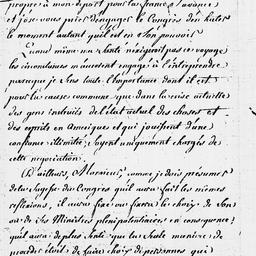 propice à mon départ pour la france j'avance
et j'ose vous prier d'engager le Congrès d'en hater
le moment autant qu'il est en son pouvoir
Quand même ma Santé n'exigeroit pas ce voyage
les circonstances m'auroient engagé à l'entreprendre
parceque je sens toute l'importance dont il est
pour la cause commune que dans la crise actuelle
des gens instruits de l'état actuel des choses et
des esprits en amerique et qui jouissent d'une
confiance illimitée, soyent uniquement chargés de
cette negociation.
D'ailleurs, Messieurs, comme je dois présumer
de la sagesse du Congrès qu'il aura fait les mêmes
réflexions, il aura fixé ou fixera le choix de son
ou de ses Ministres plenipotentiaires en consequence;
qu'il aura de plus senti que la seule maniere de
proceder étoit de faire choix de personnes qui